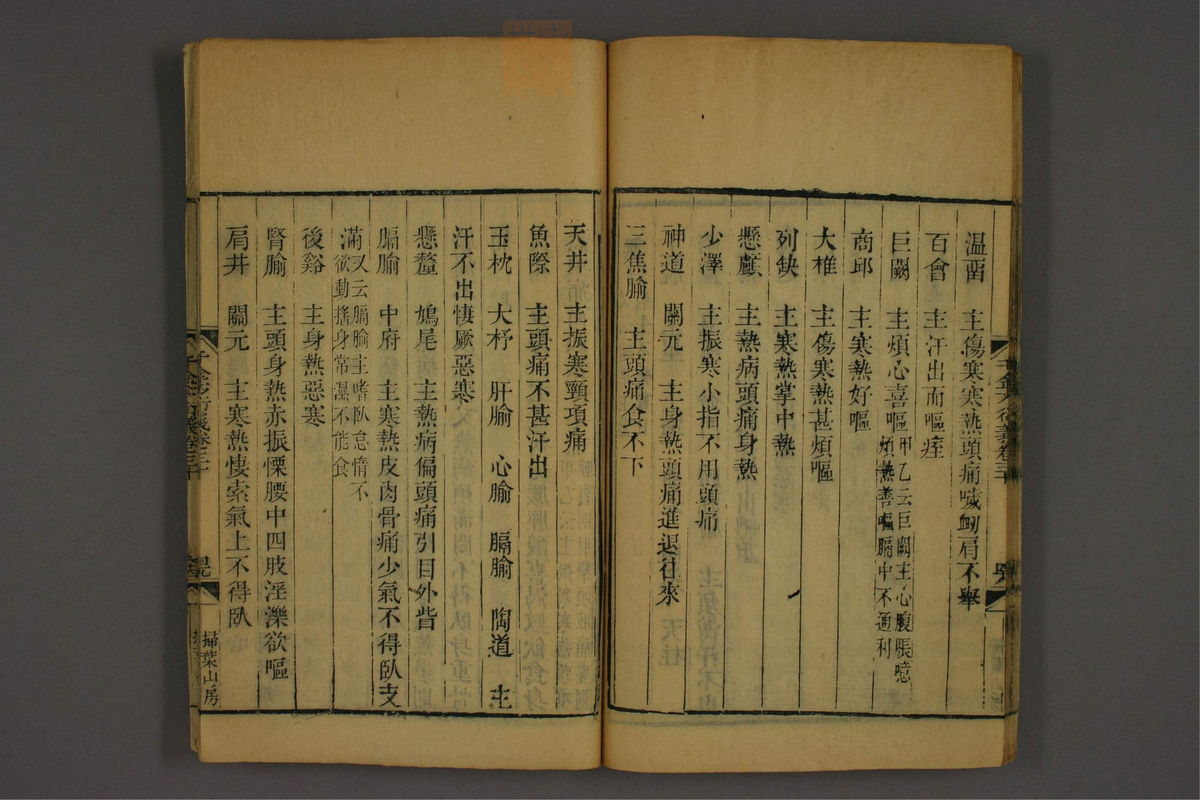 温畱　主傷寒寒熱頭痛噦衂肩不舉
百會　主汗出而嘔痓
巨闕　主煩心喜嘔甲乙云巨闕主心腹脹噫煩熱善嘔膈中不通利
商邱　主寒熱好嘔
大椎　主傷寒熱甚煩嘔
列缺　主寒熱掌中熱
懸顱　主熱病頭痛身熱
少澤　主振寒小指不用頭痛
神道　關元　主身熱頭痛進退往來
三焦腧　主頭痛食不下
天井　主振寒頸項痛
魚際　主頭痛不甚汗出
玉枕　大杼　肝腧　心腧　膈腧　陶道　主
汗不出悽厥惡寒
懸釐　鳩尾　主熱病偏頭痛引目外眥
膈腧　中府　主寒熱皮肉骨痛少氣不得臥支
滿又云膈腧主嗜臥怠惰不欲動搖身常濕不能食
後谿　主身熱惡寒
腎腧　主頭身熱赤振慄腰中四肢淫濼欲嘔
肩井　關元　主寒熱悽索氣上不得臥
掃葉山房